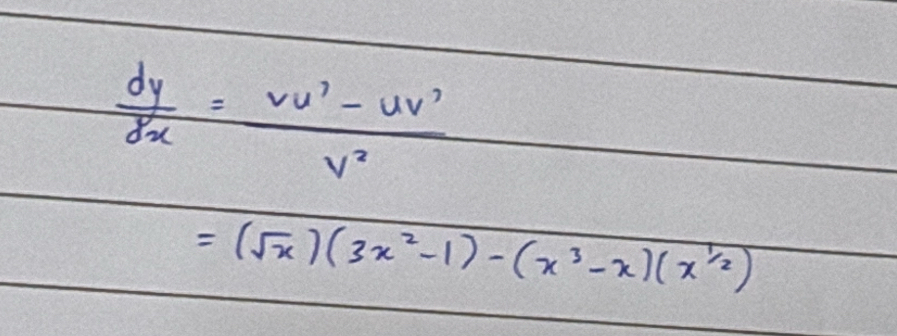 dy/dx = (vu' - uv')/v²
= (√x)(3x²-1)-(x³-x)(x^1/2)